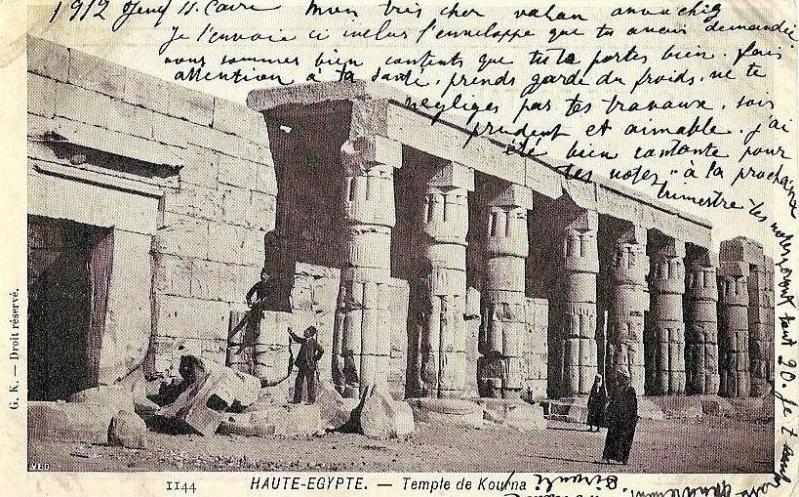 1912 Jeudi 11. Caire Mon très cher vahan
Je t'envoie ci inclus l'enveloppe que tu avais demandée
nous sommes bien contents que tu te portes bien. fais
attention à ta santé, prends garde du froids. ne te
négliges pas tes travaux. sois
prudent et aimable. j'ai
été bien contante pour
tes notes à la prochaine
trimestre tes notes
20. Je t'
G. K. — Droit réservé.
VED
1144 HAUTE-EGYPTE. — Temple de Kourna